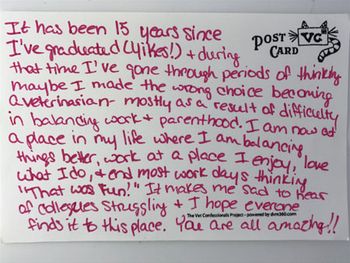 It has been 15 years since
I've graduated (Yikes!) + during
POST VC
CARD
that time I've gone through periods of thinking
maybe I made the wrong choice becoming
a veterinarian - mostly as a result of difficulty
in balancing work + parenthood. I am now at
a place in my life where I am balancing
things better, work at a place I enjoy, love
what I do, + end most work days thinking
"That was fun!" It makes me sad to hear
of collegues struggling + I hope everyone
The Vet Confessionals Project - powered by dvm360.com
finds it to this place. You are all amazing!!